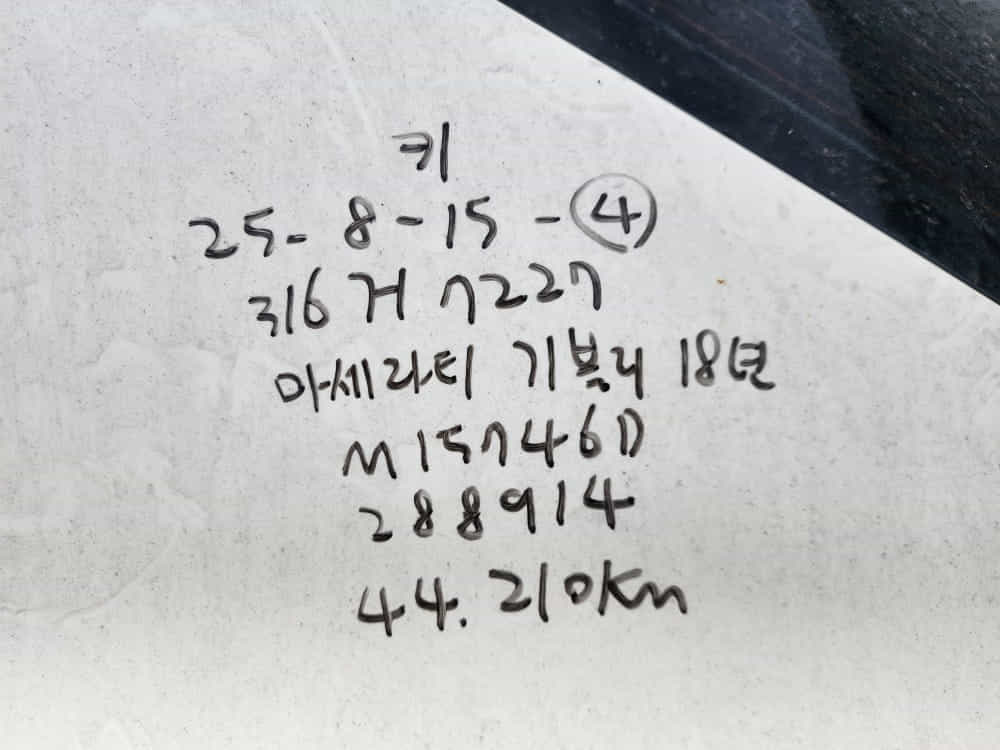 키
25-8-15-④
316거7227
마세라티 기블리 18년
M15746D
288914
44.210Km